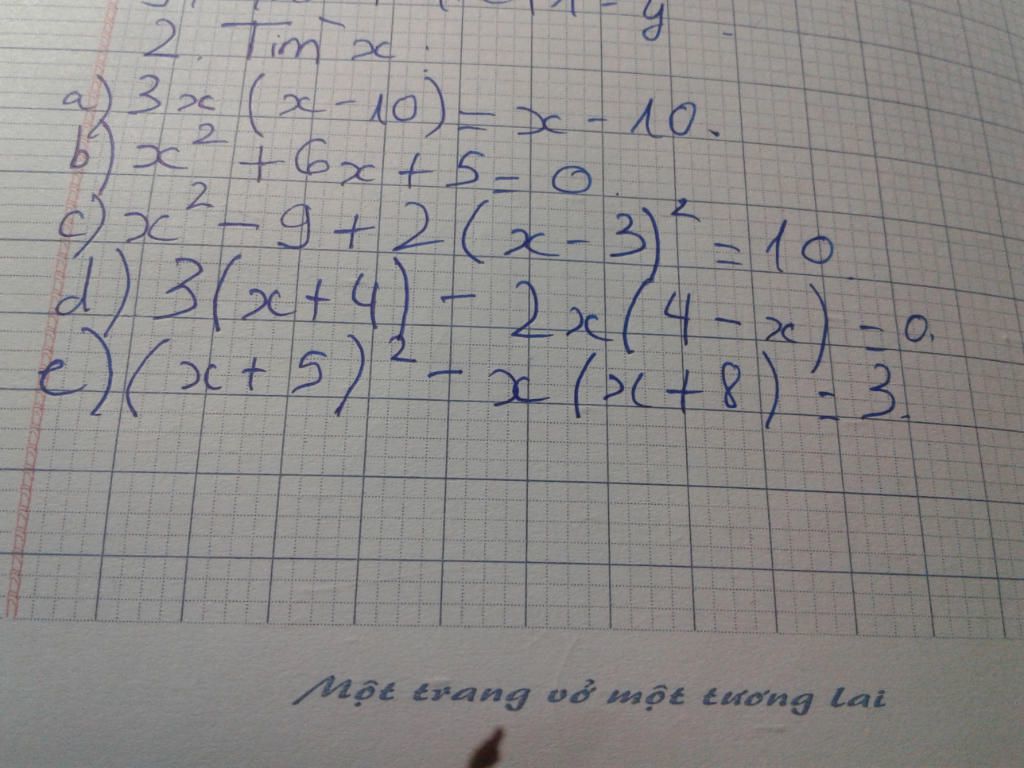 2. Tìm x.
a) 3x (x - 10) = x - 10.
b) x² + 6x + 5 = 0.
c) x² - 9 + 2 (x - 3)² = 10
d) 3(x + 4) - 2x(4 - x) = 0.
e) (x + 5)² - x (x + 8) = 3.
Một trang vở một tương lai